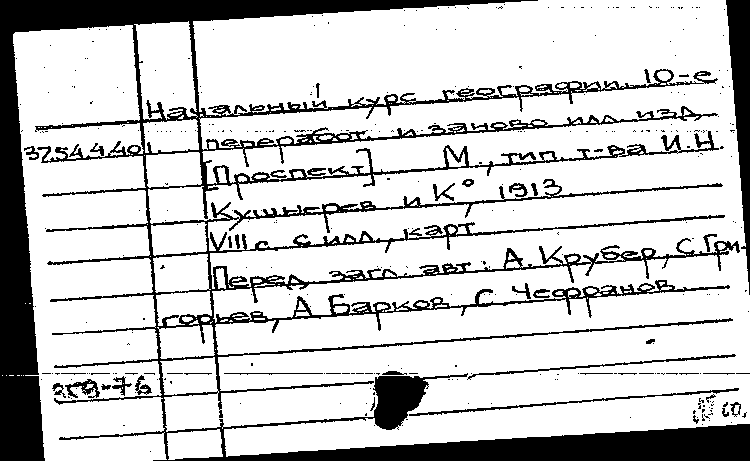 Начальный курс географии. 10-е
37.54.4.401. переработ. и заново илл. изд.
[Проспект]. М., тип. т-ва И.Н.
Кушнерев и К°, 1913.
VIII с. с илл., карт.
Перед загл. авт.: А. Крубер, С. Гри-
горьев, А Барков, С. Чефранов.
-76